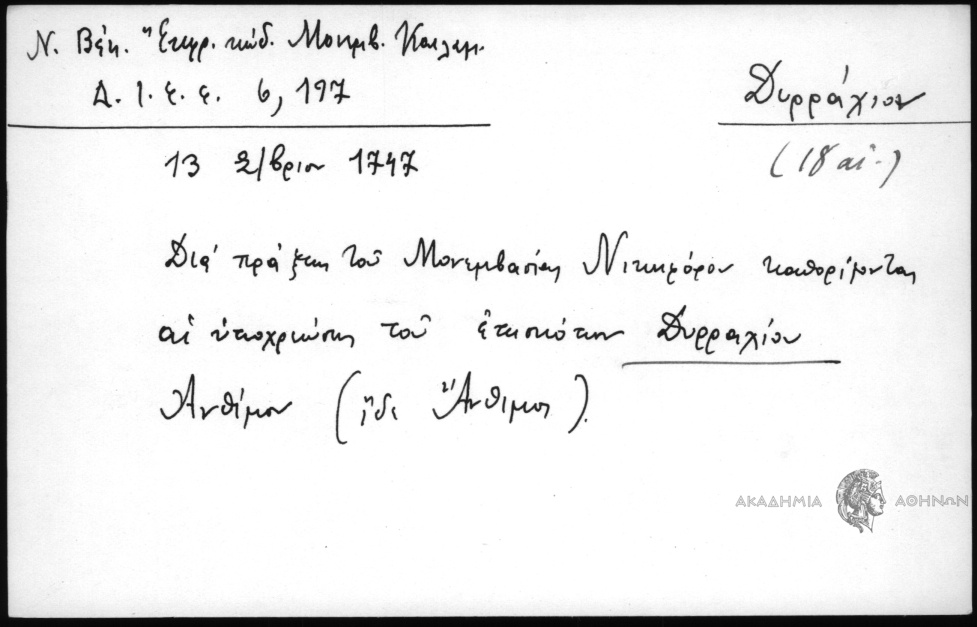 Ν. Βέη. "Έκφρ. κώδ. Μονεμβ. Καλαμ.
Δ. Ι. Ε. Ε. 6, 197
Δυρράχιον
(18 αἰ.)
13 2/βριου 1747
Διά πράξεως τοῦ Μονεμβασίας Νικηφόρου καθορίζονται
αἱ ὑποχρεώσεις τοῦ ἐπισκόπου Δυρραχίου
Ἀνθίμου (ἴδε Ἄνθιμος).
ΑΚΑΔΗΜΙΑ ΑΘΗΝΩΝ